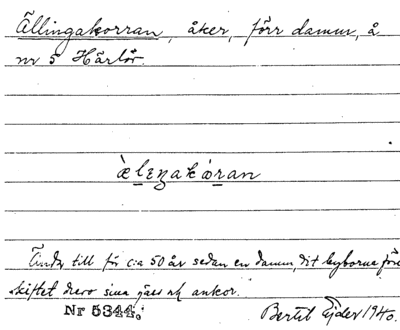 Ällingakorran, åker, förr damm, å
nr 5 Härlöv.
Ända till för c:a 50 år sedan en damm, dit byborna före
skiftet drevo sina gäss och ankor.
Nr 5344. Bertil Ejder 1940.